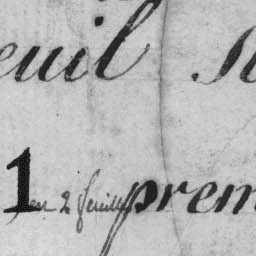 euil
1 en 2 feuilles prem